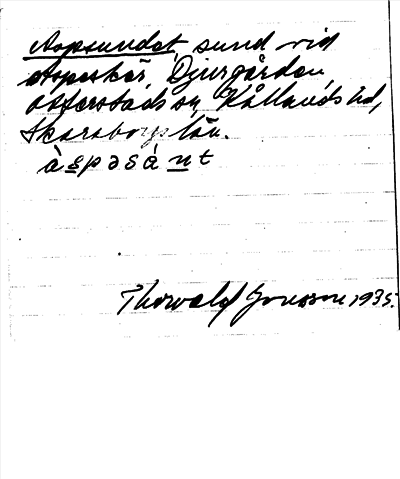 Aspsundet, sund vid
Aspeskär, Djurgården,
Otterstads sn, Kållands hd,
Skaraborgs län.
àspəsánt
Thorwald Jonsson 1935.